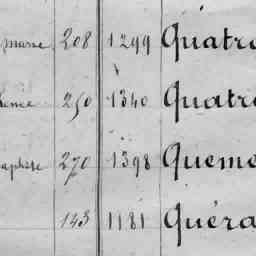 marie 208 1299 Quatre
250 1340 Quatre
270 1398 Queme
143 1181 Quéra